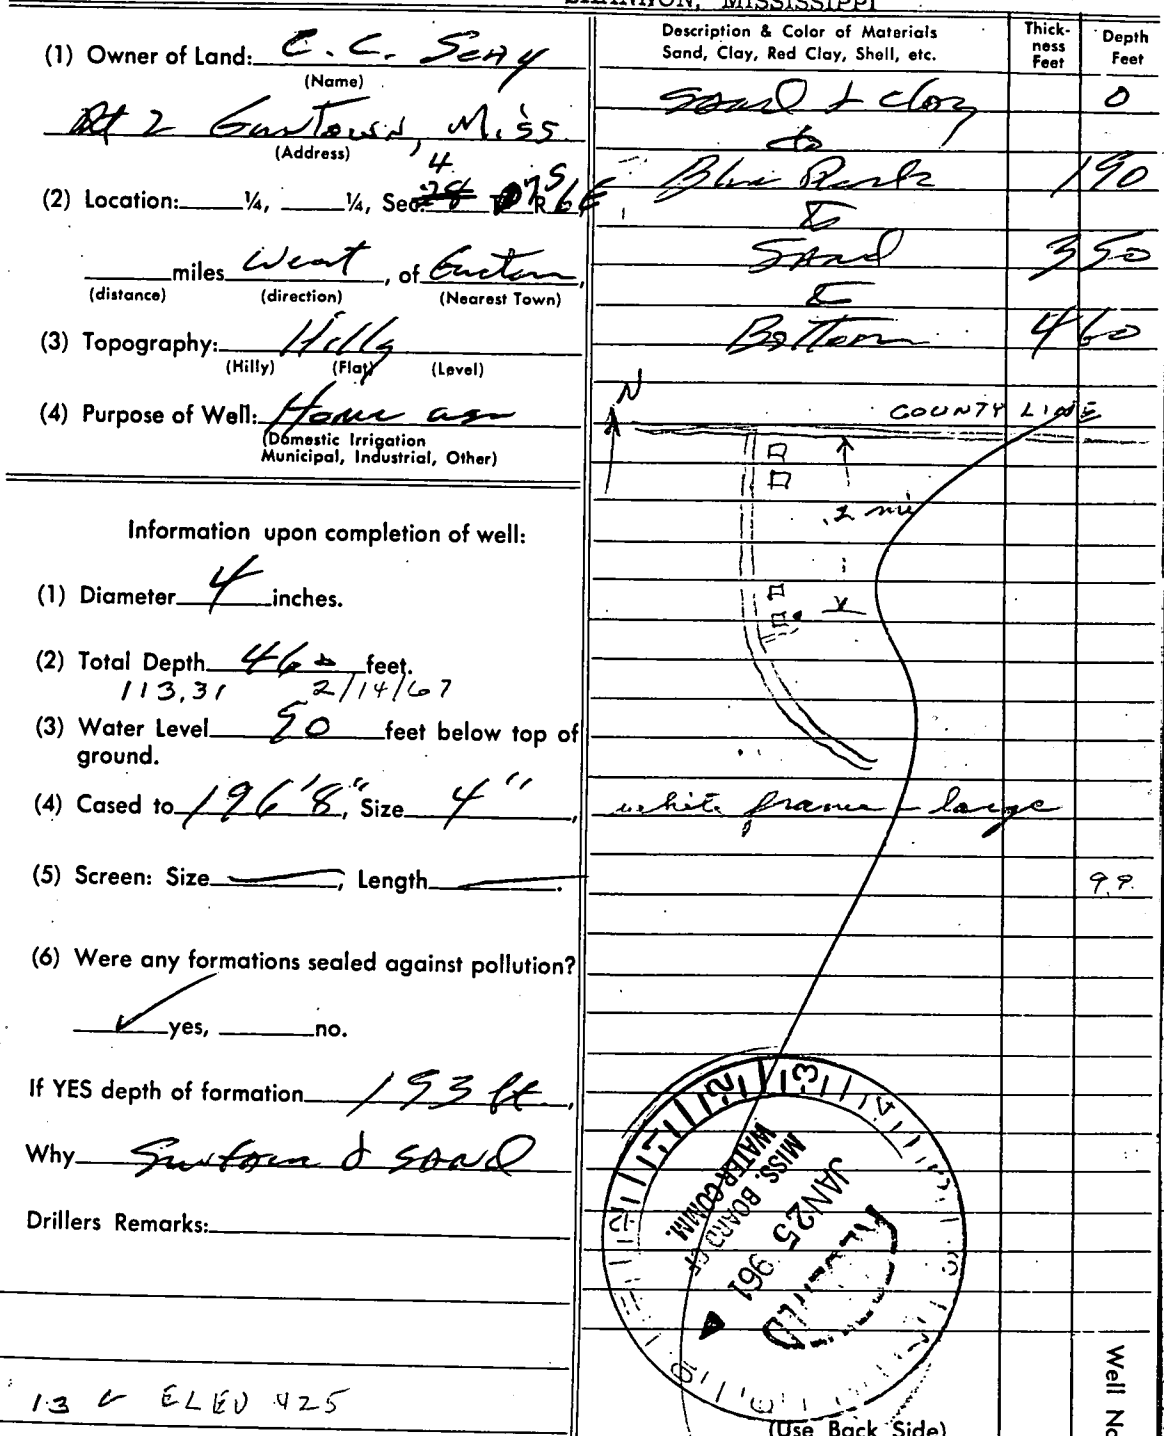 SHANNON, MISSISSIPPI
(1) Owner of Land: C. C. Seay
(Name)
Rt 2 Guntown, Miss.
(Address)
4
(2) Location: ¼, ¼, Sec. 28 7S R 6E
miles West, of Guntown,
(distance) (direction) (Nearest Town)
(3) Topography: Hilly
(Hilly) (Flat) (Level)
(4) Purpose of Well: Home use
(Domestic Irrigation
Municipal, Industrial, Other)
Information upon completion of well:
(1) Diameter 4 inches.
(2) Total Depth 460 feet.
113.31 2/14/67
(3) Water Level 90 feet below top of
ground.
(4) Cased to 196'8", Size 4",
(5) Screen: Size , Length .
(6) Were any formations sealed against pollution?
✓ yes, no.
If YES depth of formation 193 ft.,
Why & SAND
Drillers Remarks:
13 ELEV 425
Description & Color of Materials
Sand, Clay, Red Clay, Shell, etc.
Thick-
ness
Feet
Depth
Feet
Sand & Clay 0
to
Blue Rock 190
to
Sand 350
to
Bottom 460
N
COUNTY LINE
.2 mi
white frame - large
9.9.
RECEIVED
JAN 25 1961
MISS. BOARD OF
WATER COMM.
(Use Back Side)
Well No